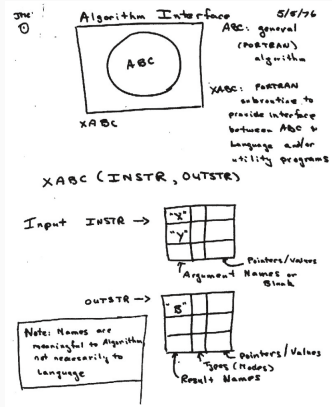 Algorithm Interface
5/5/76
ABC
ABC: general
(FORTRAN)
algorithm
XABC
XABC: FORTRAN
subroutine to
provide interface
between ABC &
Language and/or
utility programs
XABC (INSTR, OUTSTR)
Input INSTR →
"X"
"Y"
Pointers/Values
Argument Names or
Blank
OUTSTR →
"B"
Pointers/Values
Types (Modes)
Result Names
Note: Names are
meaningful to Algorithm
not necessarily to
Language